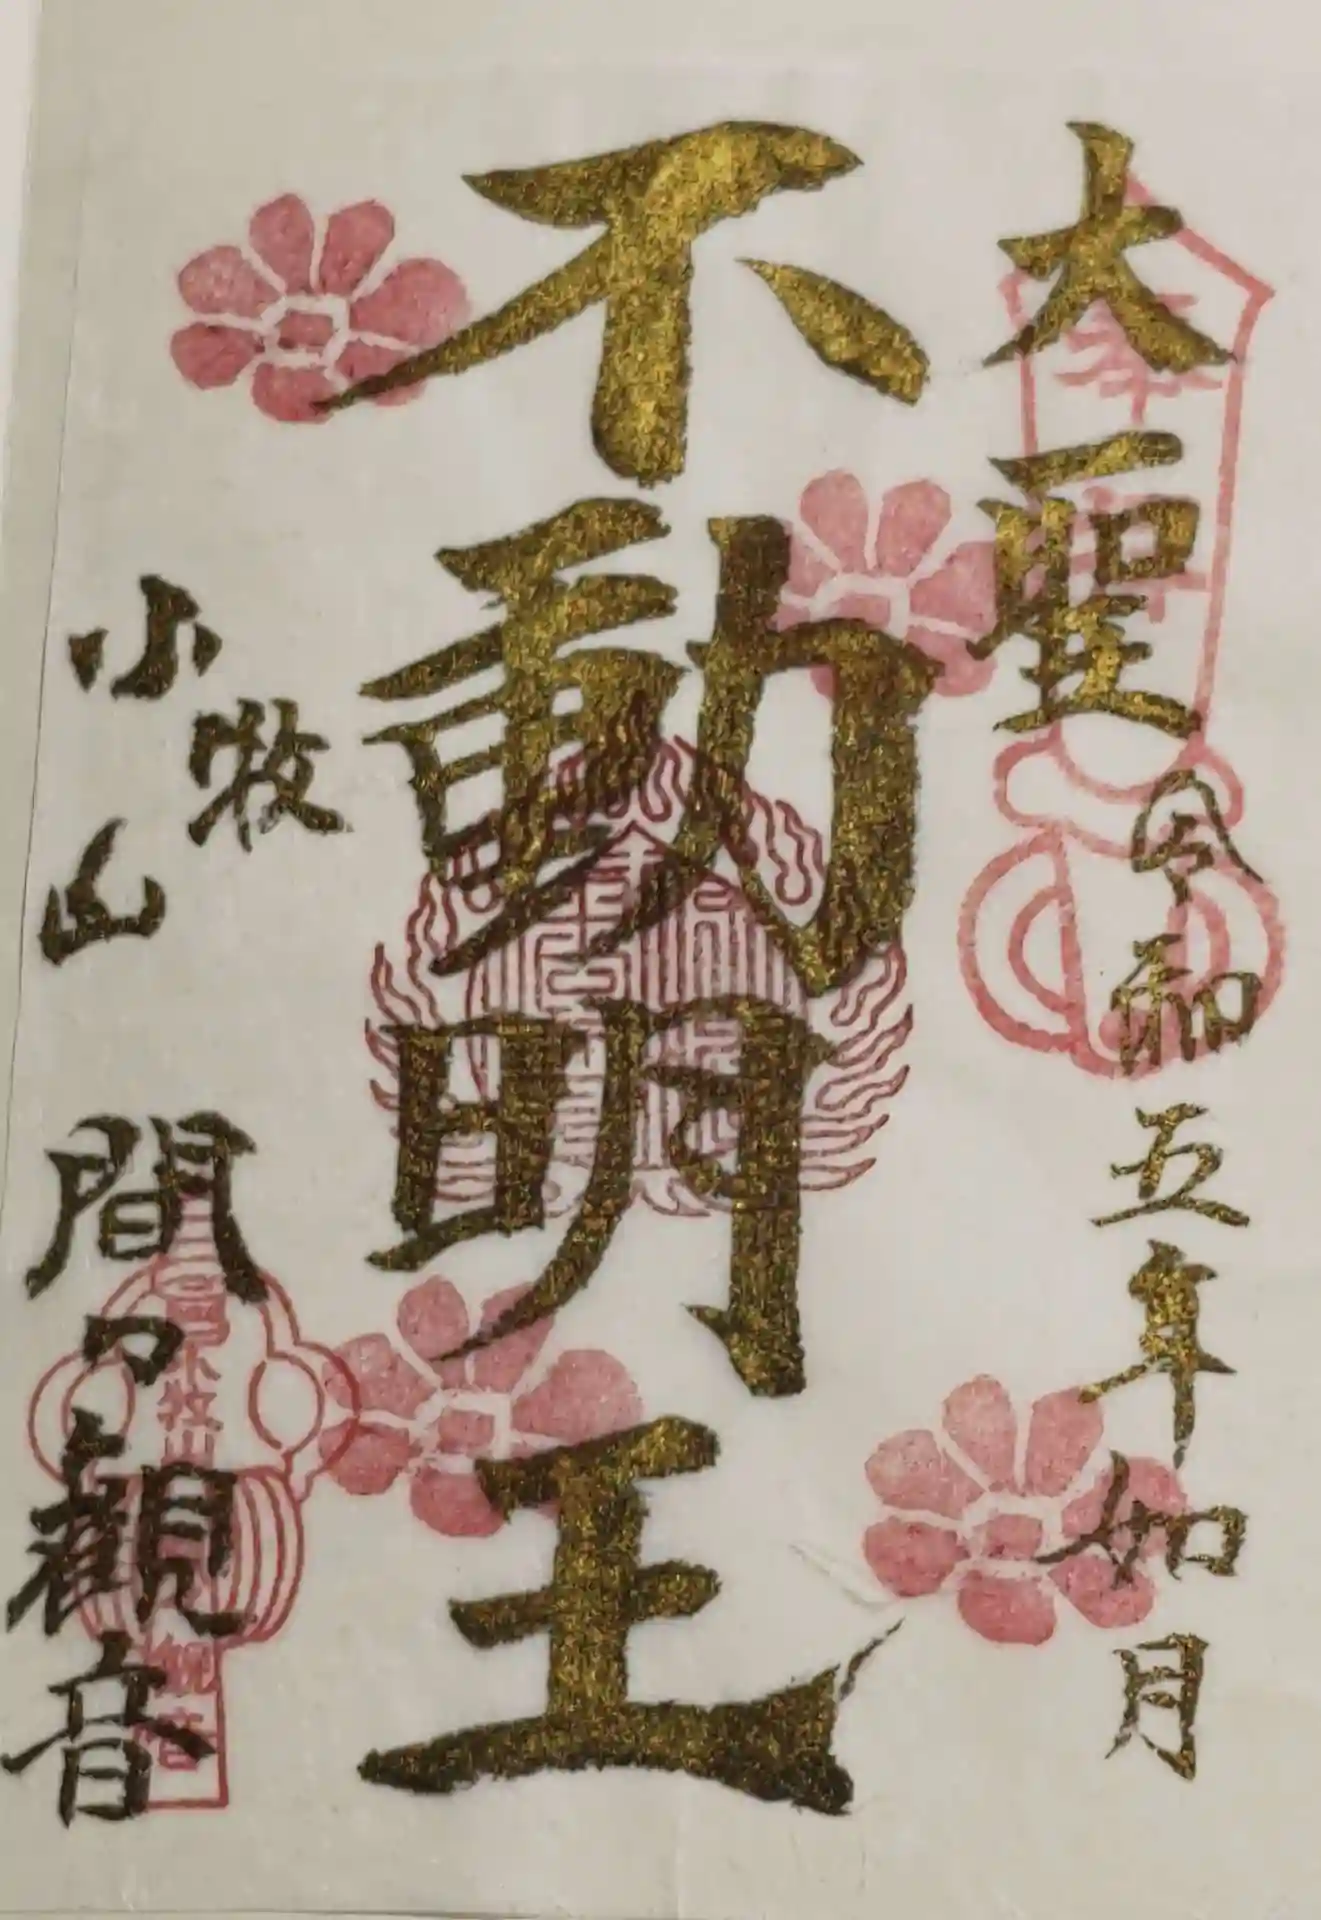 大聖
令和五年如月
不動明王
小牧山
間々観音
奉拝
小牧山
間々観音